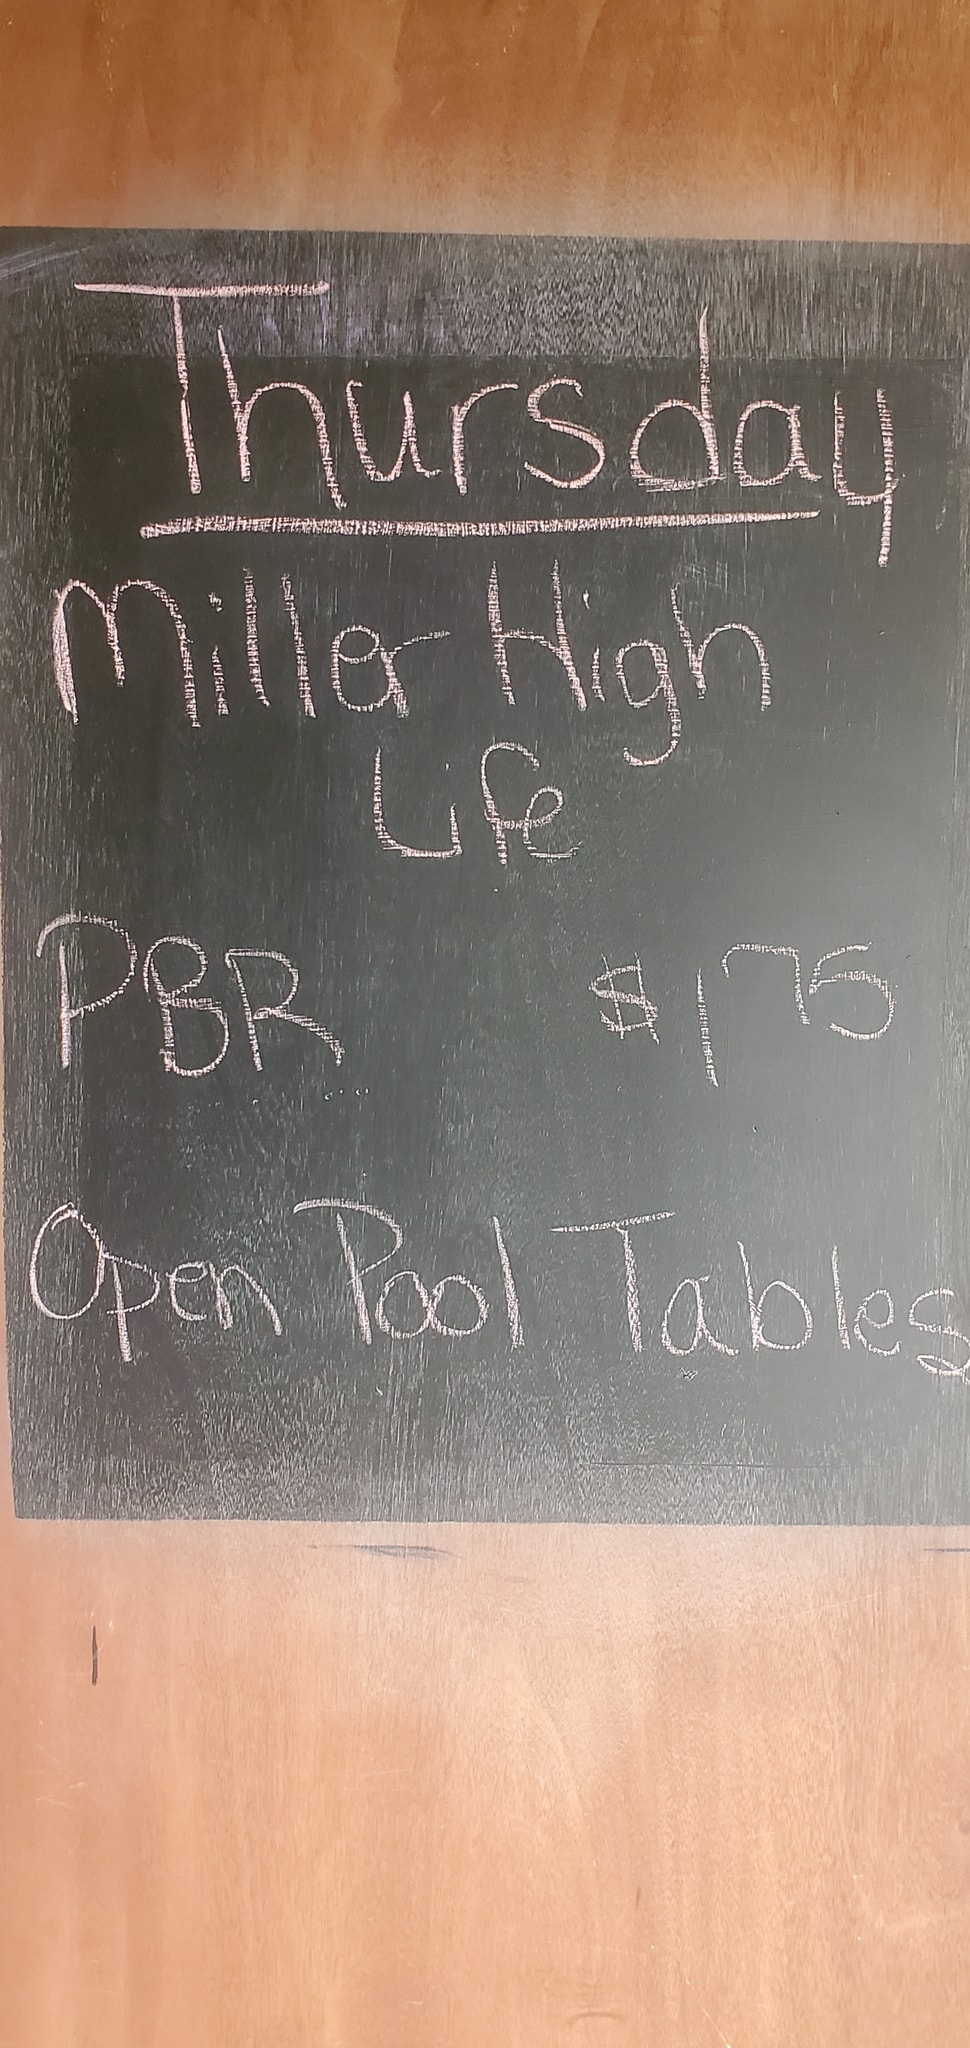 Thursday
Miller High
Life
PBR $1 75
Open Pool Tables